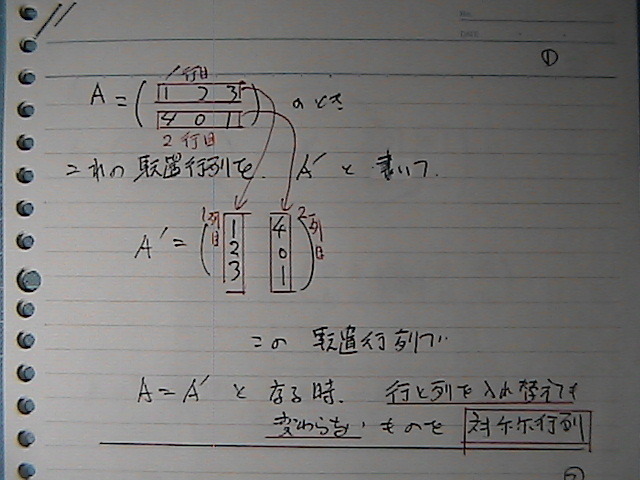 NO.
DATE
①
1行目
A = ( 1 2 3 ) のとき
4 0 1
2行目
これの 転置行列を A' と 書いて
1列目 2列目
A' = ( 1 4 )
2 0
3 1
この 転置行列で
A = A' と なる時、 行と列を入れ替えても
変わらない ものを 対称行列
②